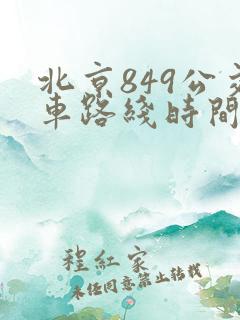 北京849公交
車路綫時間
程紅家
未经同意禁止转载